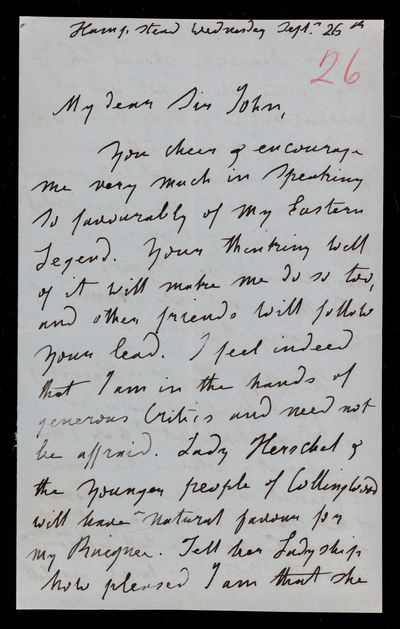 Hampstead Wednesday Sept.r 26th
26
My dear Sir John,
You cheer & encourage
me very much in speaking
so favourably of my Eastern
Legend. Your thinking well
of it will make me do so too,
and other friends will follow
your lead. I feel indeed
that I am in the hands of
generous Critics and need not
be affraid. Lady Herschel &
the younger people of Collingwood
will have natural favour for
my
Tell her Ladyship
how pleased I am that she